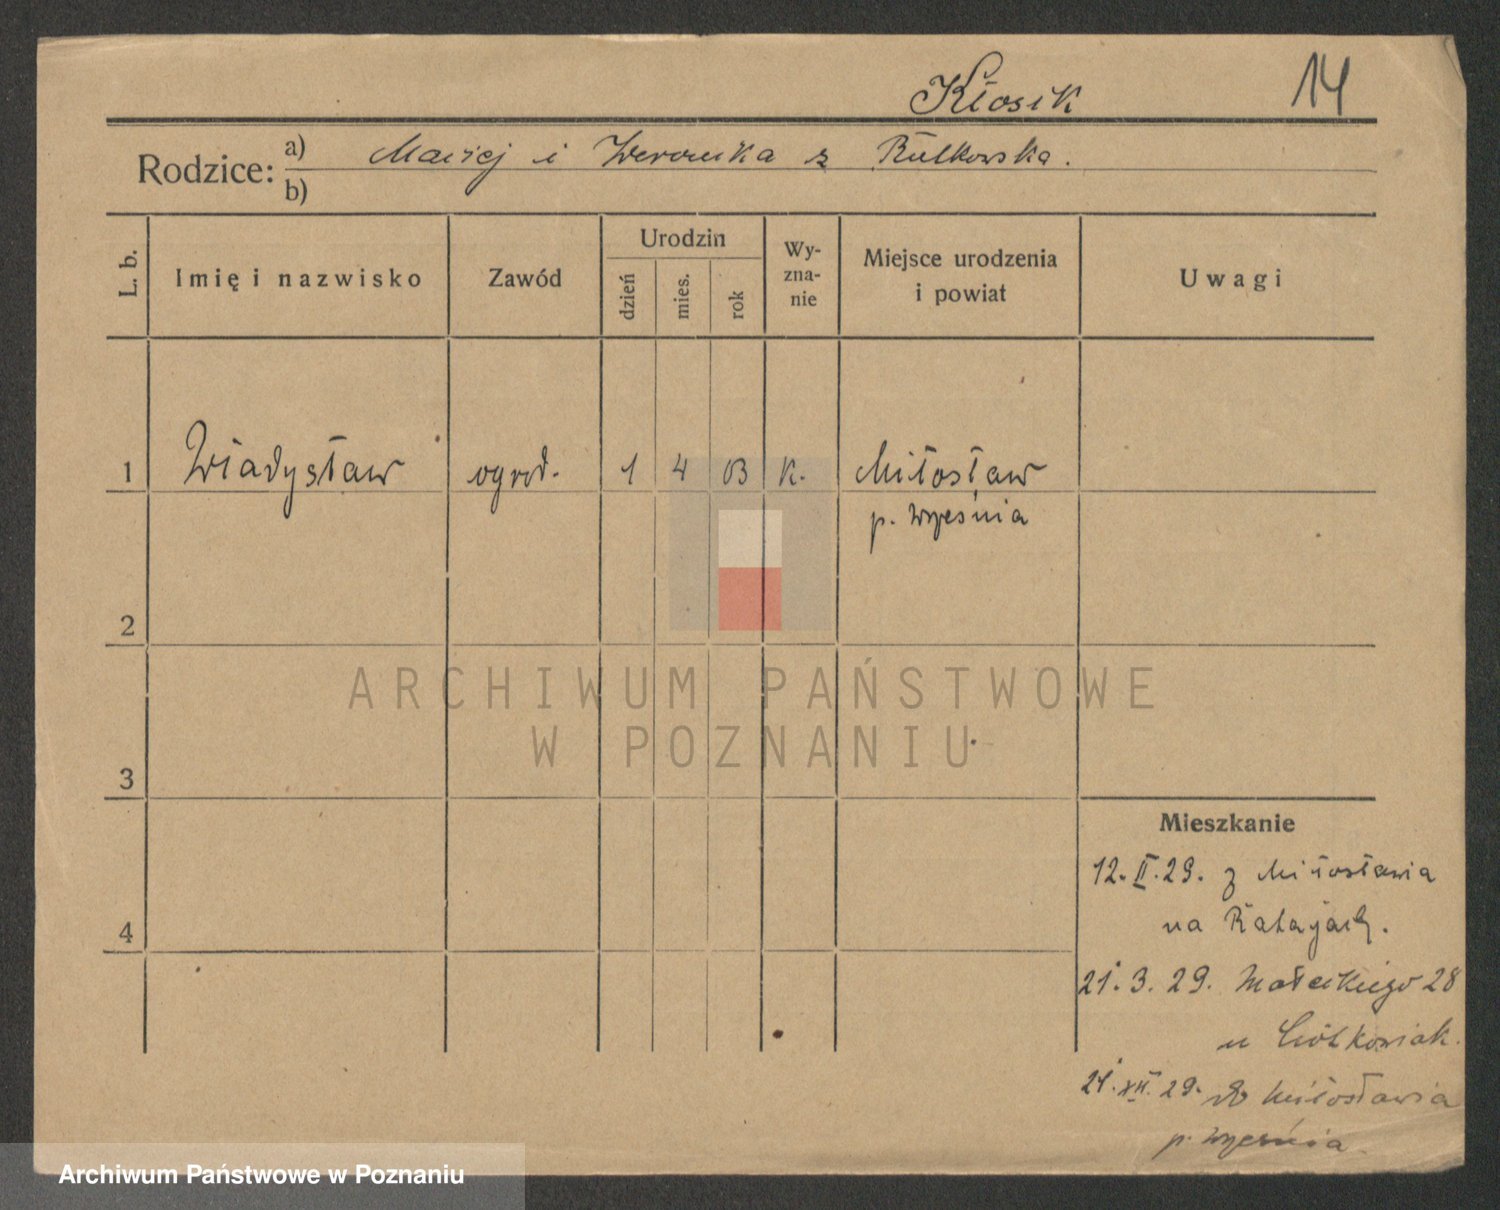 Kłosik 14
Rodzice: a) Maciej i Weronika z Rutkowska.
b)
L. b. Imię i nazwisko Zawód Urodzin dzień mies. rok Wyznanie Miejsce urodzenia i powiat Uwagi
1 Władysław ogrod. 1 4 03 k. Miłosław
p. Września
2
ARCHIWUM PAŃSTWOWE
W POZNANIU
3
Mieszkanie
12. II. 29. z Miłosławia
4
na Ratajach.
21. 3. 29. Małeckiego 28
u
21. XII. 29. do Miłosławia
p. Września.
Archiwum Państwowe w Poznaniu